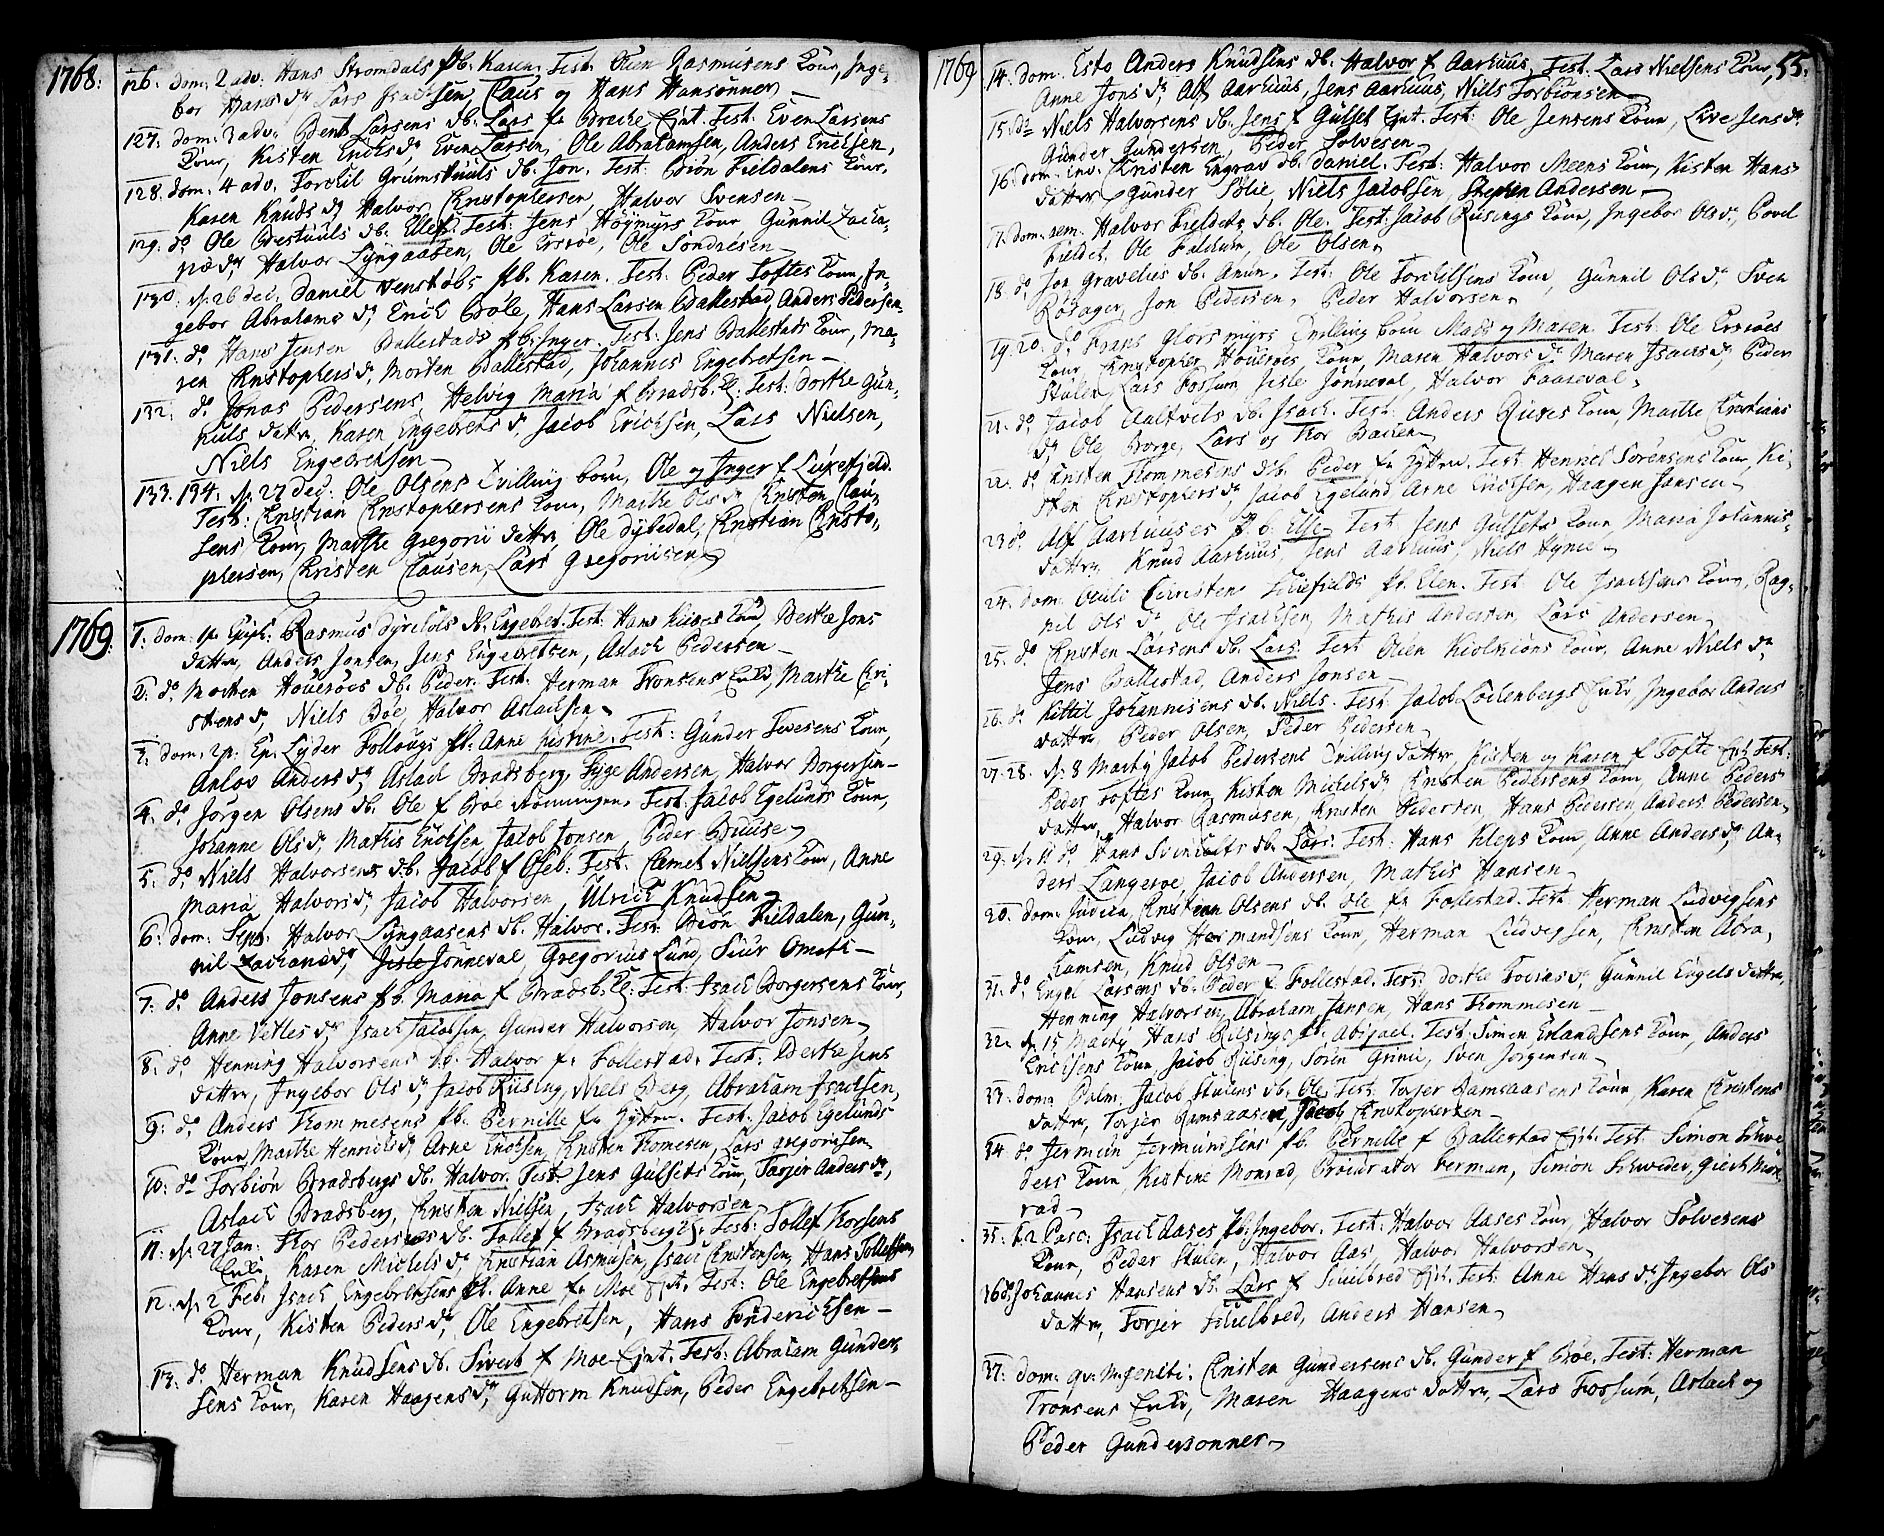 1768:
126. dom: 2 adv: Hans Stromdals fb. Karen. Test. Olien Rasmusens Kone, Inge-
bor Hans dr Lars Isachsen, Claus og Hans Hansønner
127. dom: 3 adv: Bent Larsens db. Lars fr Brecke Ejnt. Test: Even Larsens
Kone, Kisten Erichs dr Even Larsen, Ole Abrahamsen, Anders Erichsen,
128. dom: 4 adv. Torchil Grumstuuls db. Jon. Test: Biön Fieldalens Kone,
Karen Knuds dr Halvor Christophersen, Halvor Svensen
129. do Ole Bestuuls db. Ellef. Test: Jens Høymyrs Kone Gunnil Zacha-
riæ dr Halvor Lyngaasen, Ole Ersröe, Ole Sondresen
130: d. 26 dec: Daniel Venstøbs fb. Karen. Test: Peder Toftes Kone, In-
gebor Abrahams dr Erich Bole, Hans Larsen Ballestad, Anders Pedersen
131. do Hans Jensen Ballestads fb. Inger. Test: Jens Ballestads Kone, Ma-
ren Christophers dr, Morten Ballestad, Johannes Engebretsen
132: do Jonas Pedersens Helvig Maria f Bradsb. Test: Dorthe Gun-
huls datter, Karen Engebrets dr Jacob Erichsen, Lars Nielsen,
Niels Engebretsen
133. 134. d. 27 dec: Ole Olsens Tvilling børn, Ole og Inger f Luxefjeld.
Test: Christian Christophersens Kone, Marthe Ols dr Christen Clau-
sens Kone, Marthe Gregorii datter Ole Dybedal, Christian Christo-
phersen, Christen Clausen, Lars Gregoriisen
1769:
1. dom: 1 p. Epiph: Rasmus Dyrchols db. Engebret. Test: Hans Kises Kone, Berthe Jons
datter, Anders Jonsen, Jens Engebretsen, Aslach Pedersen
2: do Morten Houeröes db. Peder. Test: Herman Tronsens Enke, Marthe Chri-
stens dr Niels Böe, Halvor Aslachsen
3. dom: 2 p: Ep: Lyder Follougs fb: Anne Kistine. Test: Gunder Ivesens Kone,
Anlov Anders dr Aslach Bradsberg, Tyge Andersen, Halvor Borgersen
4. do Jørgen Olsens db. Ole f Böe Rönningen. Test: Jacob Egelunds Kone,
Johanne Ols dr Mathis Enochsen, Jacob Jonsen, Peder Buuse
5: do Niels Halvorsens db. Jacob f Oseb: Test. Clemet Nielsens Kone, Anne
Maria Halvors dr Jacob Halvorsen, Ulrich Knudsen
6: dom: Sept: Halvor Lyngaasens db. Halvor. Test: Biön Fieldalen, Gun-
nil Zachariæ dr Jisle Jönneval, Gregorius Lund, Siur Omeh
7: do Anders Jonsens fb. Maria f Bradsb. Test: Isach Borgersens Kone,
Anne Vetles dr Isach Jacobsen, Gunder Halvorsen, Halvor Jonsen
8: do Henning Halvorsens db. Halvor fr Follestad. Test: Berthe Jens
datter, Ingebor Ols dr Jacob Riising, Niels Berg, Abraham Isachsen,
9: do Anders Thommesens fb. Pernille fr Zytter. Test: Jacob Egelunds
Kone, Marthe Henrichs dr Arne Enochsen, Christen Thomesen, Lars Gregoriisen
10: do Torbiön Bradsbergs db. Halvor. Test: Jens Gulsets Kone, Torjer Anders dr,
Aslach Bradsberg, Christen Nielsen, Isach Halvorsen
11: d. 27 Jan: Thor Pedersens db. Tollef f Bradsberg. Test: Tollef Thorsens
Enke, Karen Michels dr Christian Asmusen, Isach Christensen, Hans Tollefsen
12. d. 2 Feb. Isach Engebretsens fb. Anne fr Moe Ejnt. Test: Ole Engebretsens
Kone, Kisten Peders dr Ole Engebretsen, Hans Frederichsen
13: do Herman Knudsens db. Sivert f Moe Ejnt. Test: Abraham Gunder-
sens Kone, Karen Haagens dr Guttorm Knudsen, Peder Engebretsen
1769
55.
14. dom. Esto Anders Knudsens db. Halvor f Aarhuus. Test. Lars Nielsens Kone,
Anne Jons dr Alf Aarhuus, Jens Aarhuus, Niels Torbiönsen
15. do Niels Halvorsens db. Jens f Gulset Ejnt. Test: Ole Jensens Kone, Live Jens dr
Gunder Gundersen, Peder Solvesen
16. dom. Inv: Christen Engrav db. Daniel. Test: Halvor Meens Kone, Kisten Hans
datter Gunder Bolie, Niels Jacobsen, Stephen Andersen
17. dom. rem. Halvor Fieldets db. Ole. Test: Jacob Riisings Kone, Ingebor Ols dr, Povel
Fieldet, Ole Falchum, Ole Olsen
18. do Jon Gravelies db. Anun. Test: Ole Torchelsens Kone, Gunnil Ols dr, Sven
Rösager, Jon Pedersen, Peder Halvorsen
19. 20. do Frans Glosmyrs Tvilling børn Mads og Maren. Test: Ole Ersröes
Kone, Christopher Houeröes Kone, Maren Halvors dr Maren Isachs dr Peder
Stulen, Lars Fossum, Jisle Jönneval, Halvor Faareval
21. do Jacob Aaltvets db. Isach. Test: Anders Riises Kone, Marthe Christians
dr Ole Borge, Lars og Thor Bachen
22. do Christen Thommesens db. Peder fr Zytter. Test Hennes Sørensens Kone, Ki-
sten Christophers dr Jacob Egelund, Arne Erichsen, Haagen Jansen
23 do Alf Aarhuuses fb. Else. Test Jens Gulsets Kone, Maria Johannis-
datter, Knud Aarhuus, Jens Aarhuus, Niels Hynie
24. dom: Oculi Christens Schifields fb. Elen. Test Ole Isachsens Kone, Rag-
nil Ols dr Ole Isachsen, Mathis Andersen, Lars Andersen
25. do Christen Larsens db. Lars. Test Olien Kiolniöns Kone, Anne Niels dr
Jens Ballestad, Anders Jonsen
26. do Kittil Johannisens db. Niels. Test. Jacob Lochenbergs Enke, Ingebor Anders
datter, Peder Olsen, Peder Pedersen
27. 28. d. 8 Martij Jacob Pedersens Tvilling døtter, Kisten og Karen f Tofte Ejnt. Test:
Peder Toftes Kone, Kisten Michels dr, Christen Pedersens Kone, Anne Peders
datter, Halvor Rasmusen, Christen Pedersen, Hans Pedersen, Anders Pedersen
29. d. 11 do Hans Svenchlts db. Lars. Test: Hans Kleps Kone, Anne Anders dr An-
ders Langeroe, Jacob Andersen, Mathis Hansen
30. dom: Judica, Christen Olsens db. Ole fr Follestad. Test: Herman Ludvigsens
Kone, Ludvig Hermandsens Kone, Herman Ludvigsen, Christen Abra-
hamsen, Knud Olsen
31. do Engel Larsens db. Peder f Follestad. Test: Dorthe Tobias dr, Gunnil Engels datter,
Henning Halvorsen, Abraham Jansen, Hans Thommesen
32. d. 15 Martij Hans Riisings fb. Abigael. Test: Simen Erlandsens Kone, Anders
Erichsens Kone, Jacob Riising, Sören Grinie, Sven Jørgensen
33. dom: Palm. Jacob Stulens db. Ole. Test: Torjer Ramsaasens Kone, Karen Christens
datter, Torjer Ramsaasen, Jacob Christophersen
34 do Jermun Jermundsens fb. Pernille f Ballestad Ejnt. Test: Simon Schwe-
ders Kone, Kistine Monrad, Procurator Herman, Simon Schweder, Giert Mon-
rad
35. f. 2 Pasc: Isach Aases fb. Ingebor. Test: Halvor Aases Kone, Halvor Solvesens
Kone, Peder Stulen, Halvor Aas, Halvor Halvorsen
36 do Johannes Hansens db. Lars f Schilbred Ejnt. Test: Anne Hans dr Ingebor Ols
datter, Torjer Schilbred, Anders Hansen
37: dom: qv: M. geniti: Christen Gundersens db. Gunder f Böe. Test: Herman
Tronsens Enke, Maren Haagens datter, Lars Fossum, Aslach og
Peder Gundersønner